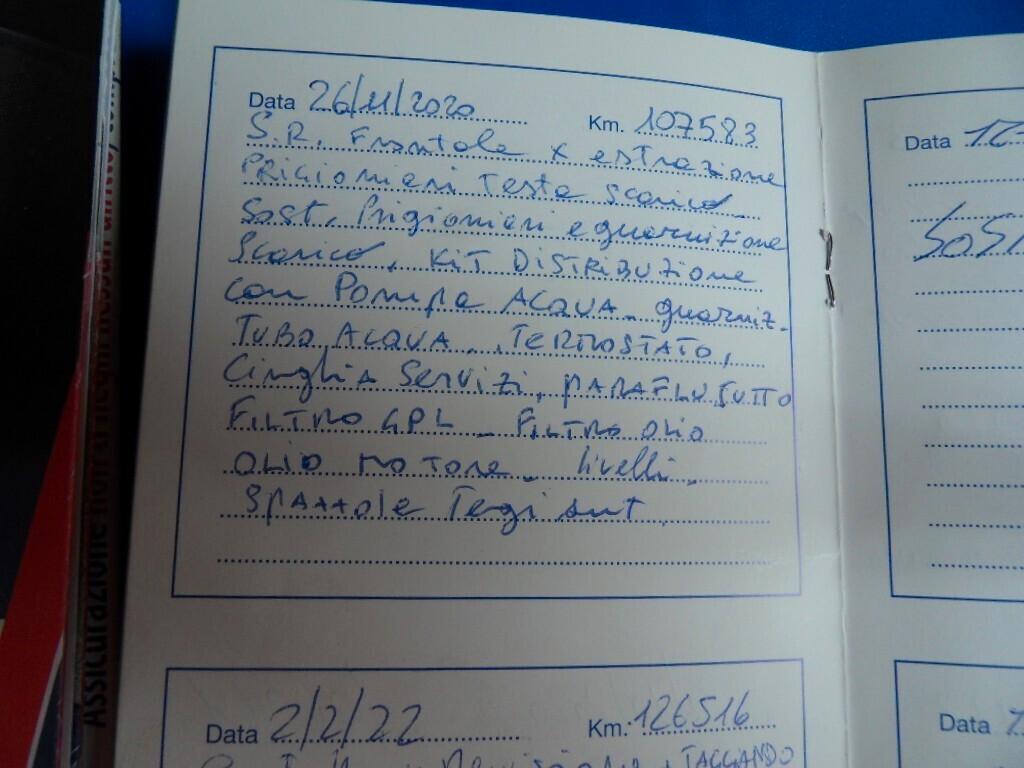 Data 26/11/2020 Km. 107583
S.R. Frontale x estrazione
PRIGIONIERI Testa Scarico
Sost. Prigionieri e guarnizione
Scarico, KIT DISTRIBUZIONE
con Pompa ACQUA - guarniz.
TUBO ACQUA - TERMOSTATO,
Cinghia Servizi, PARAFLU, TUTTO
FILTRO GPL - FILTRO OLIO
OLIO MOTORE - livelli -
SPAZZOLE Tergi ant.
Data 2/2/22 Km. 126516
TAGLIANDO
Data
SOST
Data
Assicurazione